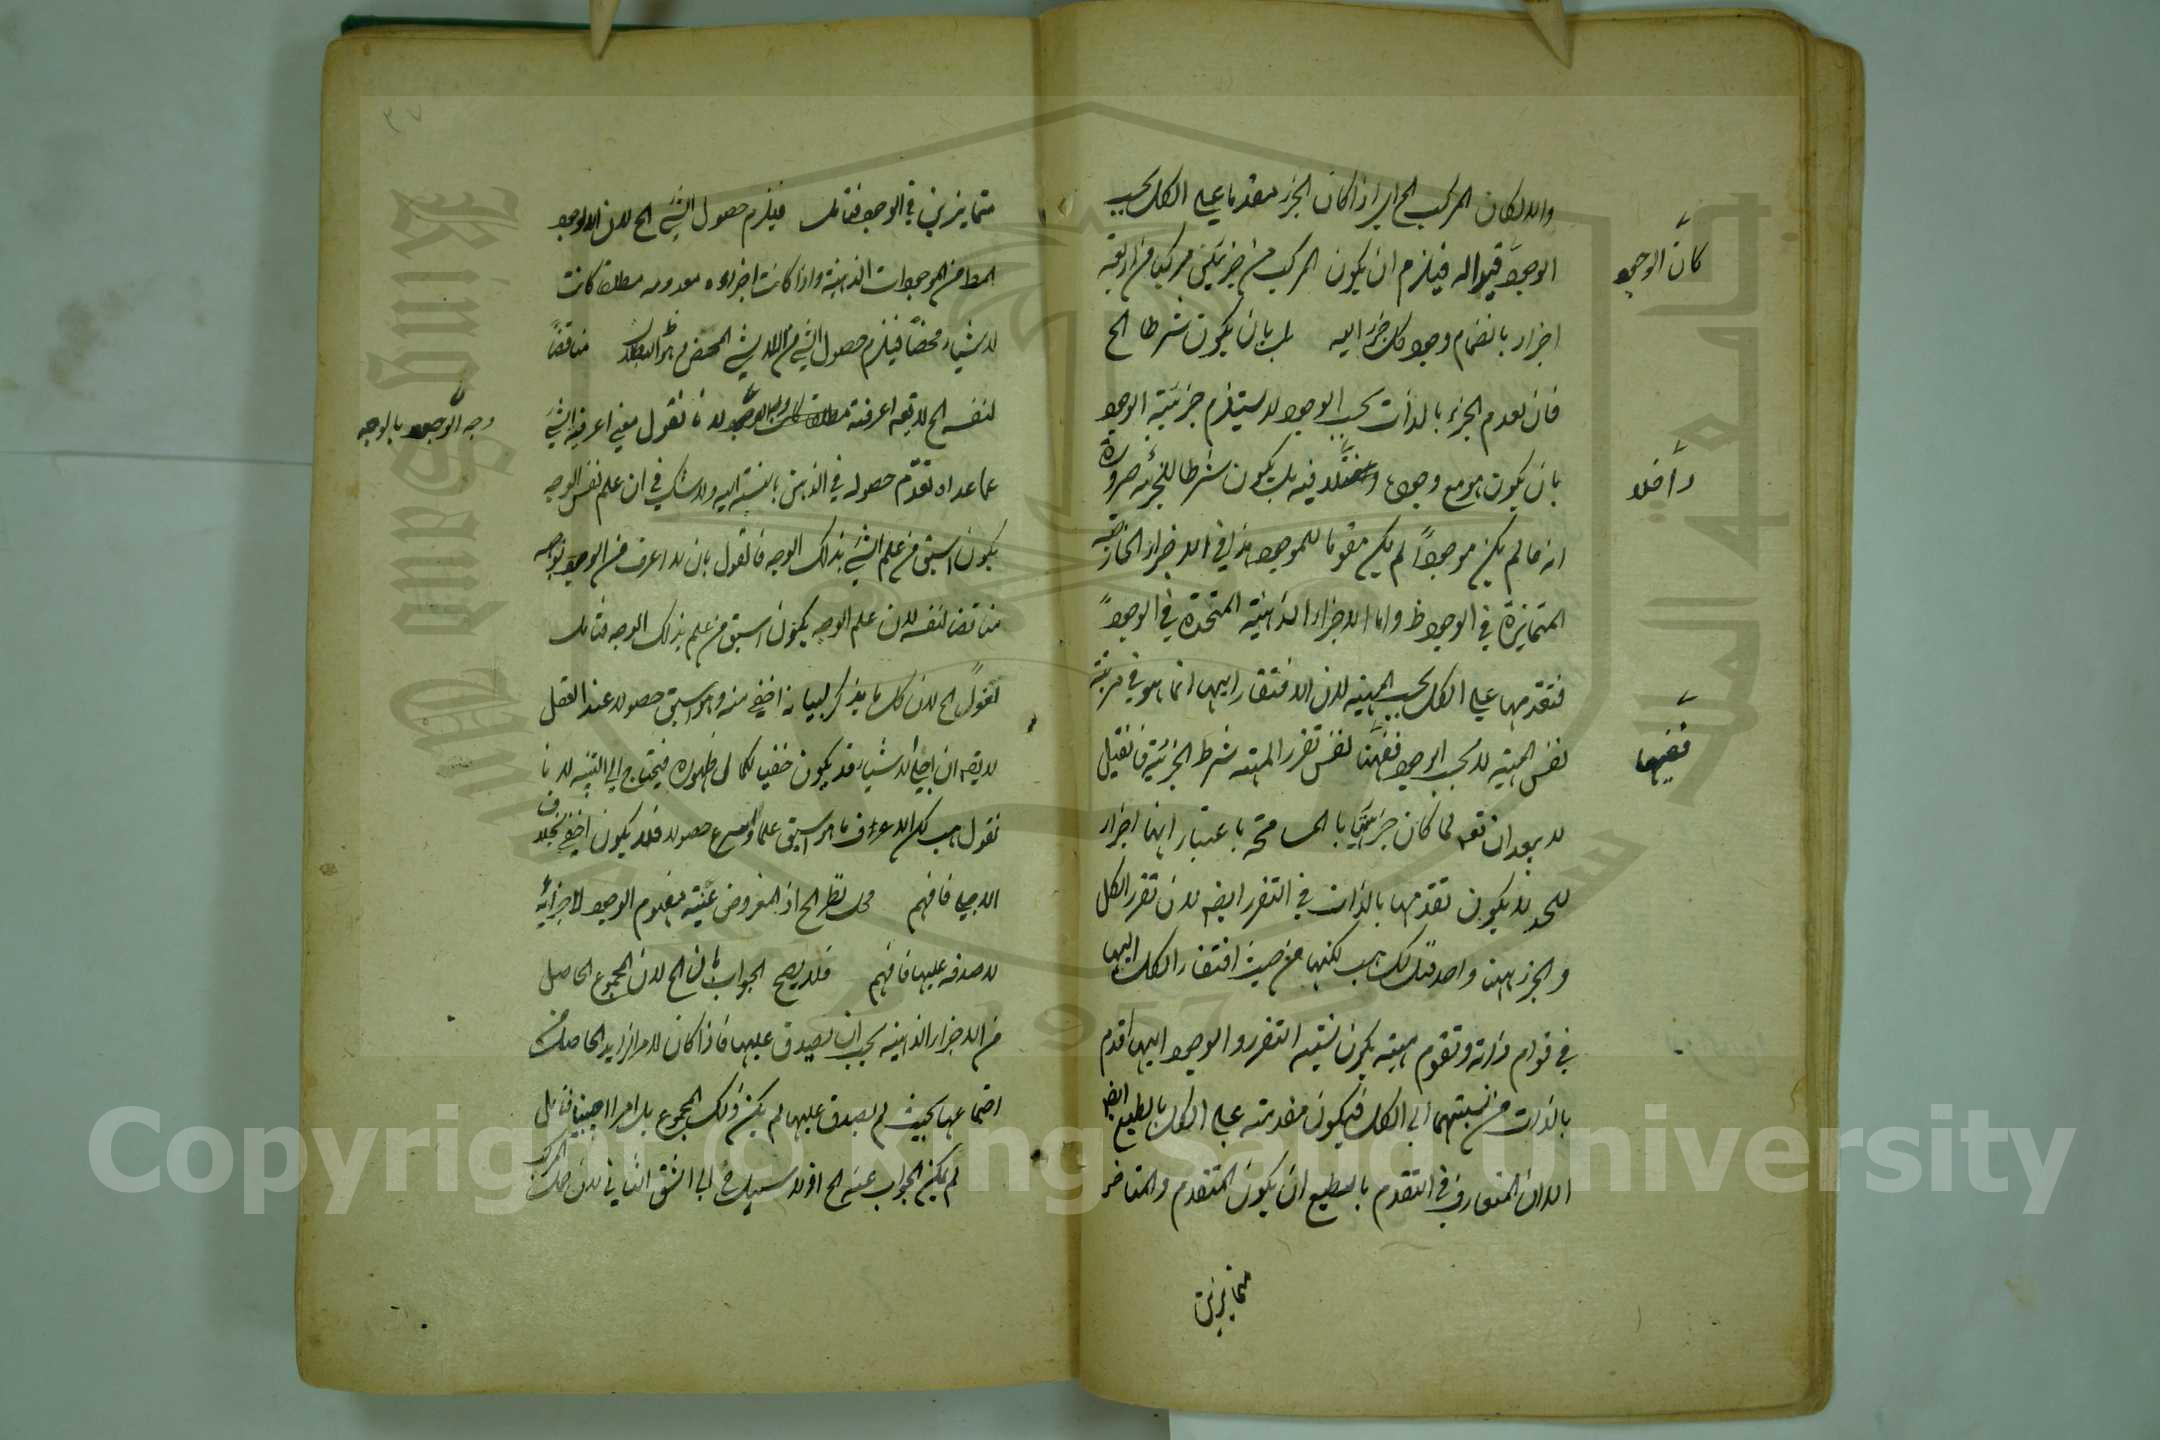 والا لكان المركب الخ اي اذا كان الجزء مقدما على الكل بحسب
الوجود قيدا له فيلزم ان يكون المركب من جزئين مركبا من اربعة
اجزاء بانضمام وجود كل جزء اليه بل بان يكون شرطا الخ
فان تقدم الجزء بالذات بحسب الوجود لا يستلزم جزئية الوجود
بان يكون هو مع وجوده داخلا فيه بل يكون شرطا للجزئية ضرورة
انه ما لم يكن موجودا لم يكن مقوما للموجود هذا في الاجزاء الخارجية
المتمايزة في الوجود ظ واما الاجزاء الذهنية المتحدة في الوجود
فتقدمها على الكل بحسب المهية لان الافتقار اليها انما هو في مرتبة
نفس المهية لا بحسب الوجود ففيها نفس تقرر المهية شرط الجزئية فان قيل
لا يبعد ان يقه لما كان جزئيتها بالمسامحة باعتبار انها اجزاء
للحد لا يكون تقدمها بالذات في التقرر ايضه لان تقرر الكل
والجزء ههنا واحد قلت لك هب لكنها من حيث افتقار الكل اليها
في قوام ذاته وتقوم مهيته يكون نسبة التقرر والوجود اليها اقدم
بالذات من نسبتهما الى الكل فيكون متقدمة على الكل بالطبع ايضه
الا ان المتعارف في التقدم بالطبع ان يكون المتقدم والمتاخر
متمايزين
كان الوجود
داخلا
ففيها
متمايزين في الوجود فتامل فيلزم حصول الشيء الخ لان الوجود
المط من الموجودات الذهنية واذا كانت اجزاؤه معدومة مطلقا كانت
لا شيئا محضا فيلزم حصول الشيء من اللاشيء المحض وهو ظ البطلان مناقضا
لنفسه الخ لا يقه اعرفية لانا نقول معنى اعرفية الشيء
عما عداه تقدم حصوله في الذهن بالنسبة اليه ولا شك في ان علم نفس الوجه
يكون اسبق من علم الشيء بذلك الوجه فالقول بان لا اعرف من الوجود بوجه
مناقضا لنفسه لان علم الوجه يكون اسبق من علم بذلك الوجه فتامل
نقول الخ لان كل ما يذكر لبيانه اخفى منه وهو اسبق حصولا عند العقل
لا يقه ان اجلى الاشياء قد يكون خفيا لكمال ظهوره فيحتاج الى التنبيه لانا
نقول هب لكن الاعرف ما هو اسبق علما واسرع حصولا فلا يكون اخفى بخلاف
الاجلى فافهم محل نظر الخ اذ المفروض عينية مفهوم الوجود لاجزائه
لا صدقه عليها فافهم فلا يصح الجواب بان الخ لان المجموع الحاصل
من الاجزاء الذهنية يجب ان يصدق عليها فاذا كان الامر الزايد الحاصل من
اجتماعها بحيث لم يصدق عليها لم يكن ذلك المجموع بل امرا اجنبيا فتامل
لم يكن الجواب عنه الخ اذ لا سبيل ح الى الشق الثاني لان
وجه الوجود بالوجه